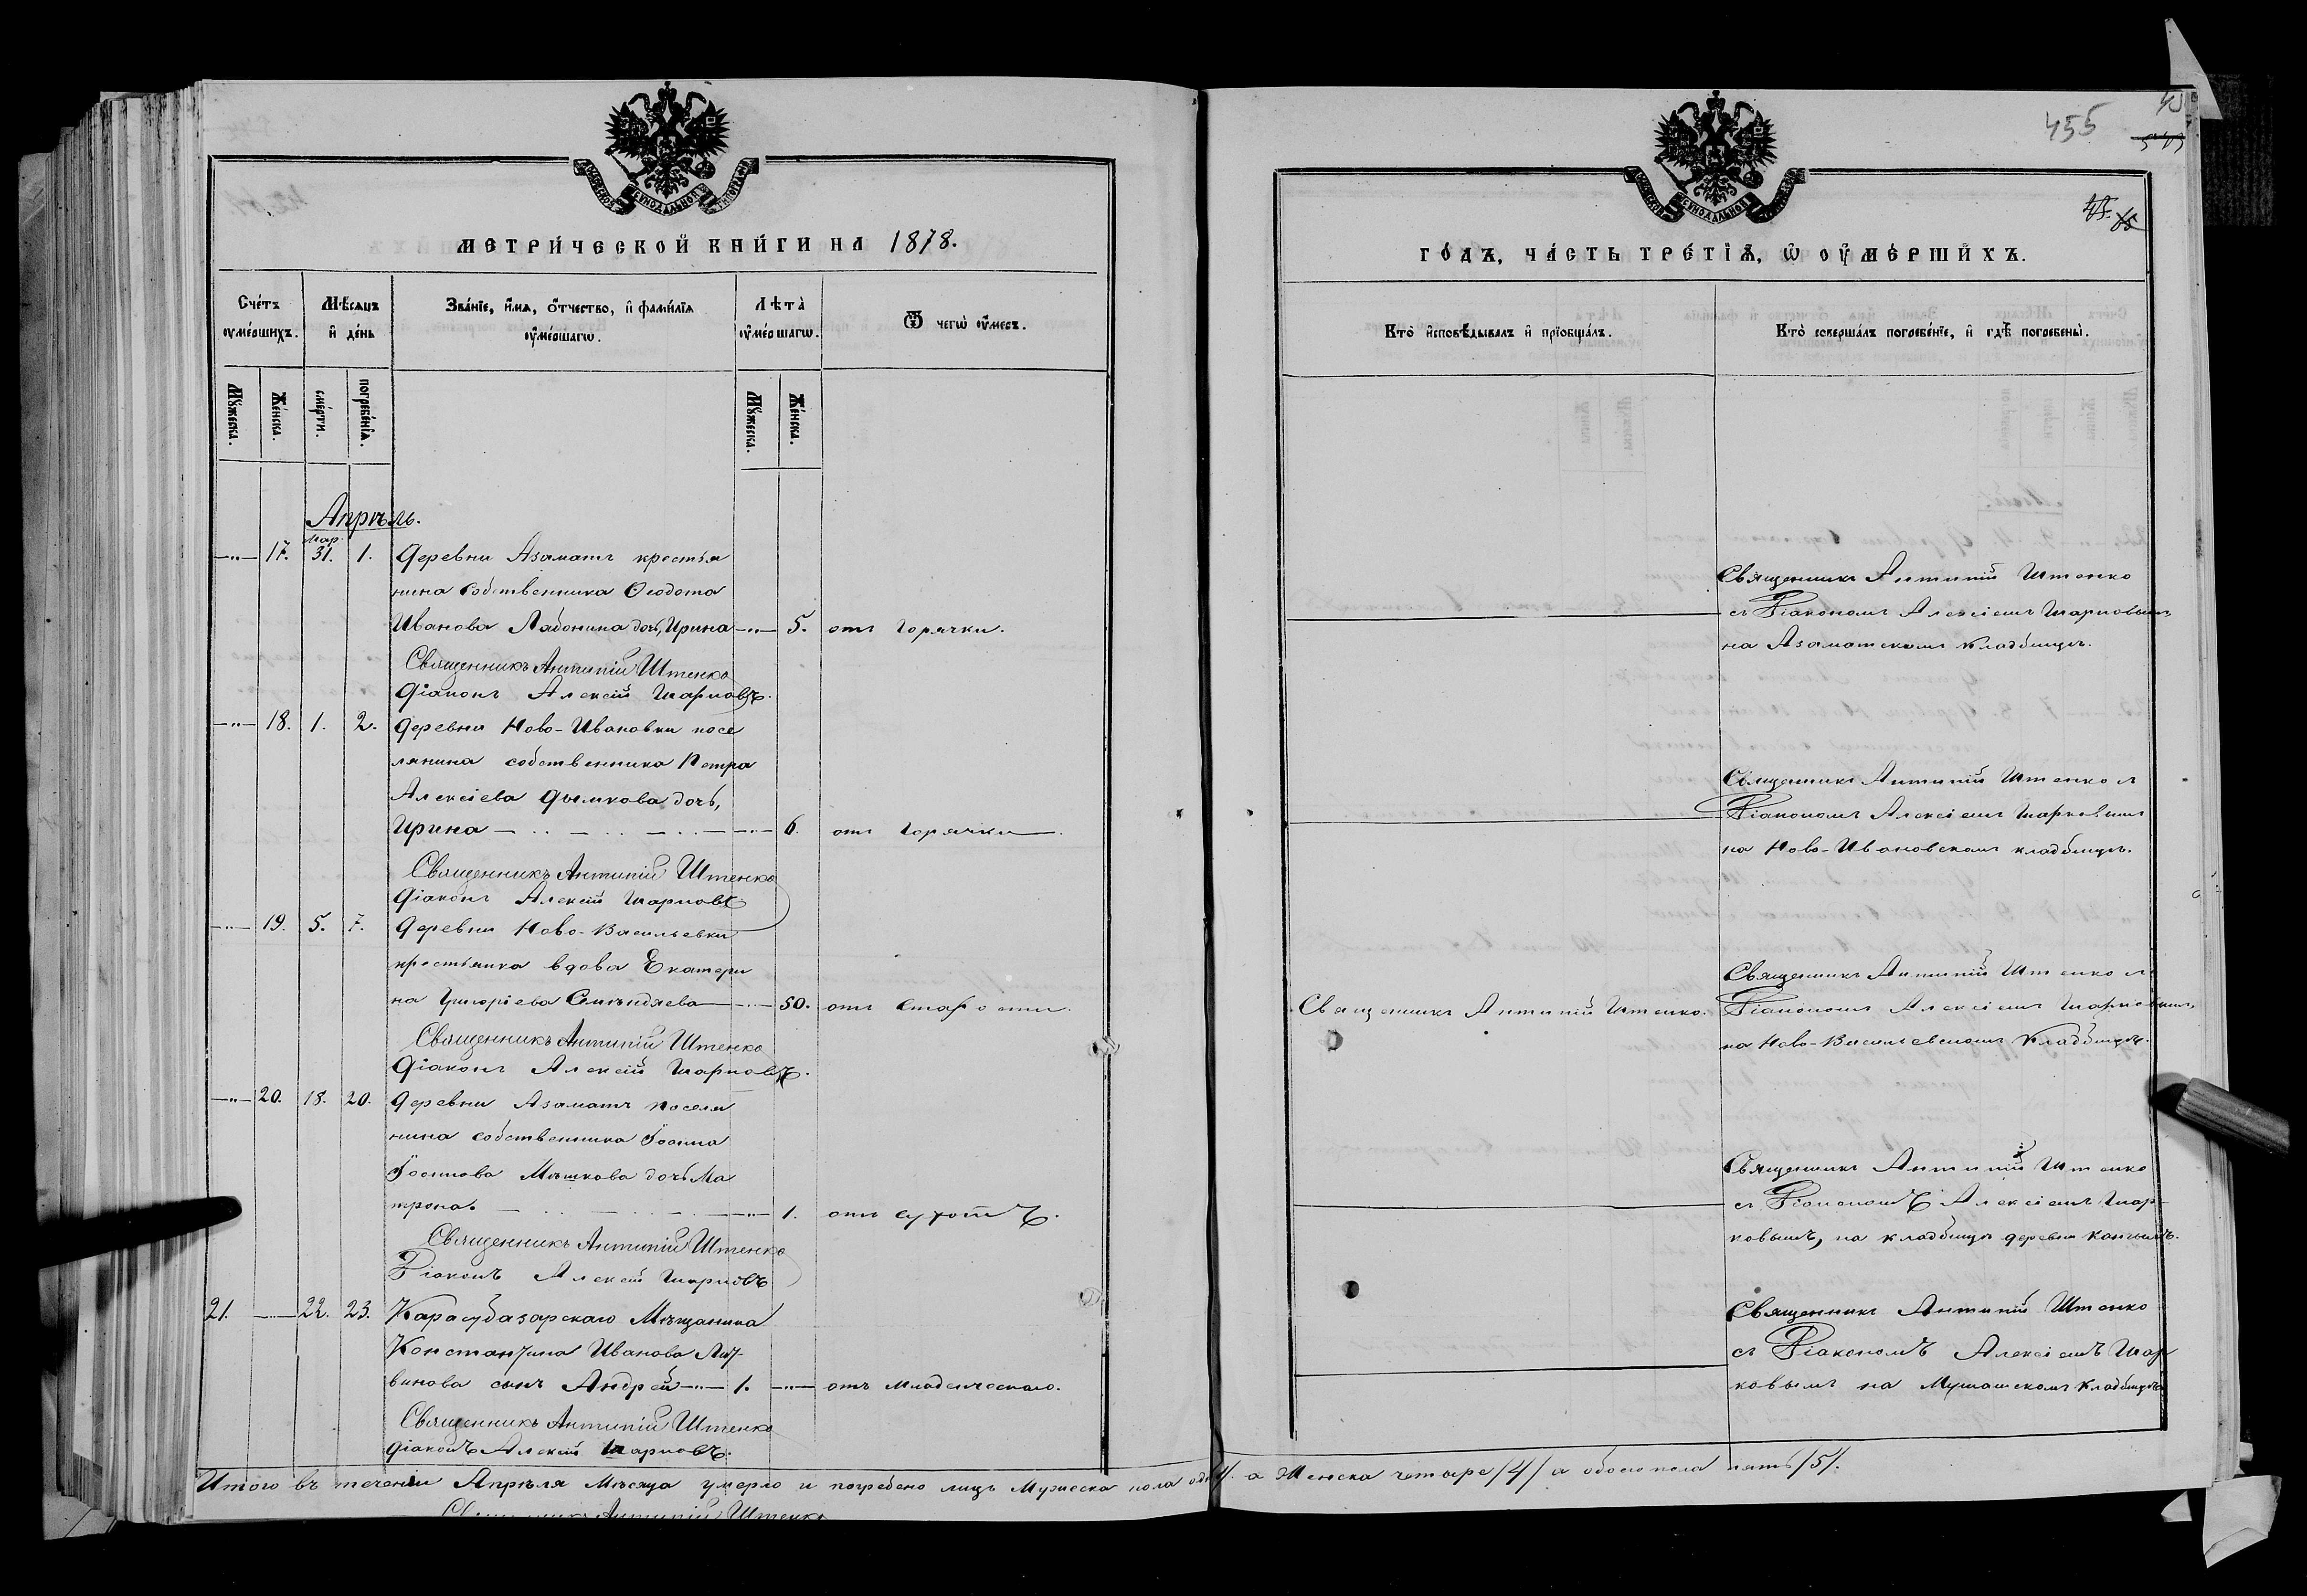 МЕТРИ́ЧЕСКОЙ КНИ́ГИ НА 1878.
Сче́тъ ᲂумершихъ.
Мѣсяцъ и҆ де́нь
Зва́нїе, и҆́мя, ѻ҆́тчество, и҆ фами́лїя ᲂу҆ме́ршагѡ.
Лѣта̀ ᲂу҆ме́ршагѡ.
Ѿ чегѡ̀ ᲂу҆меръ.
Мꙋ́жеска.
Же́нска.
сме́рти.
погребе́нїѧ.
Мꙋ́жеска.
Же́нска.
Апрѣль.
—"— 17. Мар. 31. 1. Деревни Азаматъ крестья
нина собственника Ѳеодота
Иванова Лабонина дочь, Ирина —"— 5. отъ горячки.
Священникъ Антипій Штенко
Діаконъ Алексій Шарковъ.
—"— 18. 1. 2. Деревни Ново-Ивановки посе
лянина собственника Петра
Алексіева Дымкова дочь,
Ирина —"— 6. отъ горячки.
Священникъ Антипій Штенко
Діаконъ Алексій Шарковъ
—"— 19. 5. 7. Деревни Ново-Васильевки
крестьянка вдова Екатери
на Григоріева —"— 50. отъ старости.
Священникъ Антипій Штенко
Діаконъ Алексій Шарковъ.
—"— 20. 18. 20. Деревни Азаматъ поселя
нина собственника Іоанна
Мѣшкова дочь Ма
трона. —"— 1. отъ сухотъ.
Священникъ Антипій Штенко
Діаконъ Алексій Шарковъ
21. —"— 22. 23. Карасубазарскаго Мѣщанина
Константина Иванова Лит
винова сынъ Андрей —"— 1. —"— отъ младенческаго.
Священникъ Антипій Штенко
Діаконъ Алексій Шарковъ.
Итого въ теченіи Апрѣля Мѣсяца умерло и погребено лицъ Мужеска пола /1/. а Женска четыре /4/ а обоего пола пять /5/.
Священникъ Антипій Штенко
455
ГО́ДЪ, ЧА́СТЬ ТРЕ́ТЇѦ, Ѡ҆ ОУ҆МЕ́РШИХЪ.
Кто̀ и҆сповѣ́дывалъ и҆ прїѻбща́лъ.
Кто̀ соверша́лъ погребе́нїе, и҆ гдѣ̀ погребены̀.
Священникъ Антипій Штенко
съ Діакономъ Алексіемъ Шарковымъ
на Азаматскомъ кладбищѣ.
Священникъ Антипій Штенко съ
Діакономъ Алексіемъ Шарковымъ
на Ново-Ивановскомъ кладбищѣ.
Священникъ Антипій Штенко.
Священникъ Антипій Штенко съ
Діакономъ Алексіемъ Шарковымъ,
на Ново-Васильевскомъ кладбищѣ.
Священникъ Антипій Штенко
съ Діакономъ Алексіемъ Шар-
ковымъ, на кладбищѣ деревни
Священникъ Антипій Штенко
съ Діакономъ Алексіемъ Шар
ковымъ на кладбищѣ